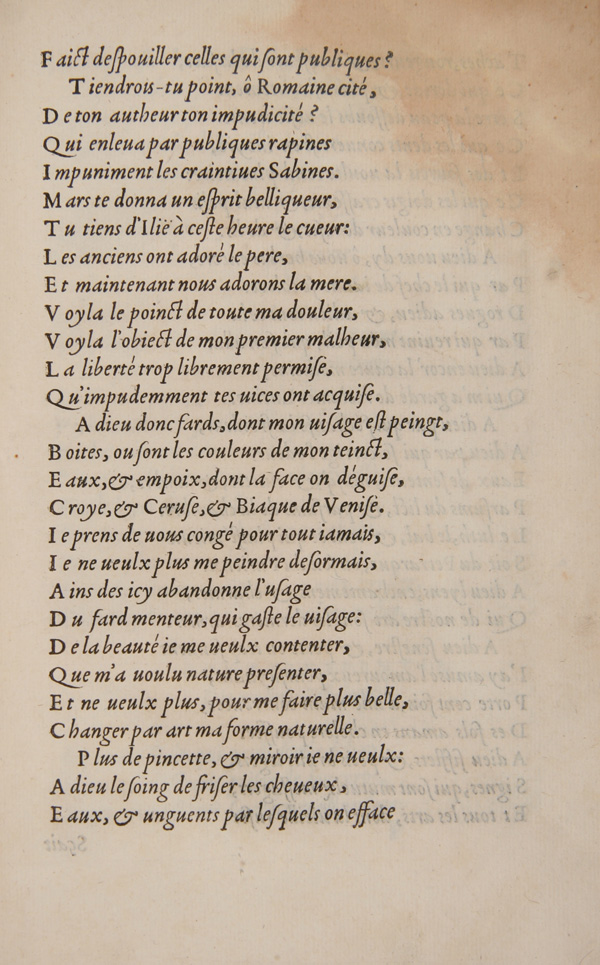 Faict despouiller celles qui sont publiques?
Tiendrois-tu point, ô Romaine cité,
De ton autheur ton impudicité?
Qui enleua par publiques rapines
Impuniment les craintiues Sabines.
Mars te donna un esprit belliqueur,
Tu tiens d'Ilië à ceste heure le cueur:
Les anciens ont adoré le pere,
Et maintenant nous adorons la mere.
Voyla le poinct de toute ma douleur,
Voyla l'obiect de mon premier malheur,
La liberté trop librement permise,
Qu'impudemment tes uices ont acquise.
Adieu donc fards, dont mon uisage est peingt,
Boites, ou sont les couleurs de mon teinct,
Eaux, & empoix, dont la face on déguise,
Croye, & Ceruse, & Biaque de Venise.
Ie prens de uous congé pour tout iamais,
Ie ne ueulx plus me peindre desormais,
Ains des icy abandonne l'usage
Du fard menteur, qui gaste le uisage:
De la beauté ie me ueulx contenter,
Que m'a uoulu nature presenter,
Et ne ueulx plus, pour me faire plus belle,
Changer par art ma forme naturelle.
Plus de pincette, & miroir ie ne ueulx:
Adieu le soing de friser les cheueux,
Eaux, & unguents par lesquels on efface